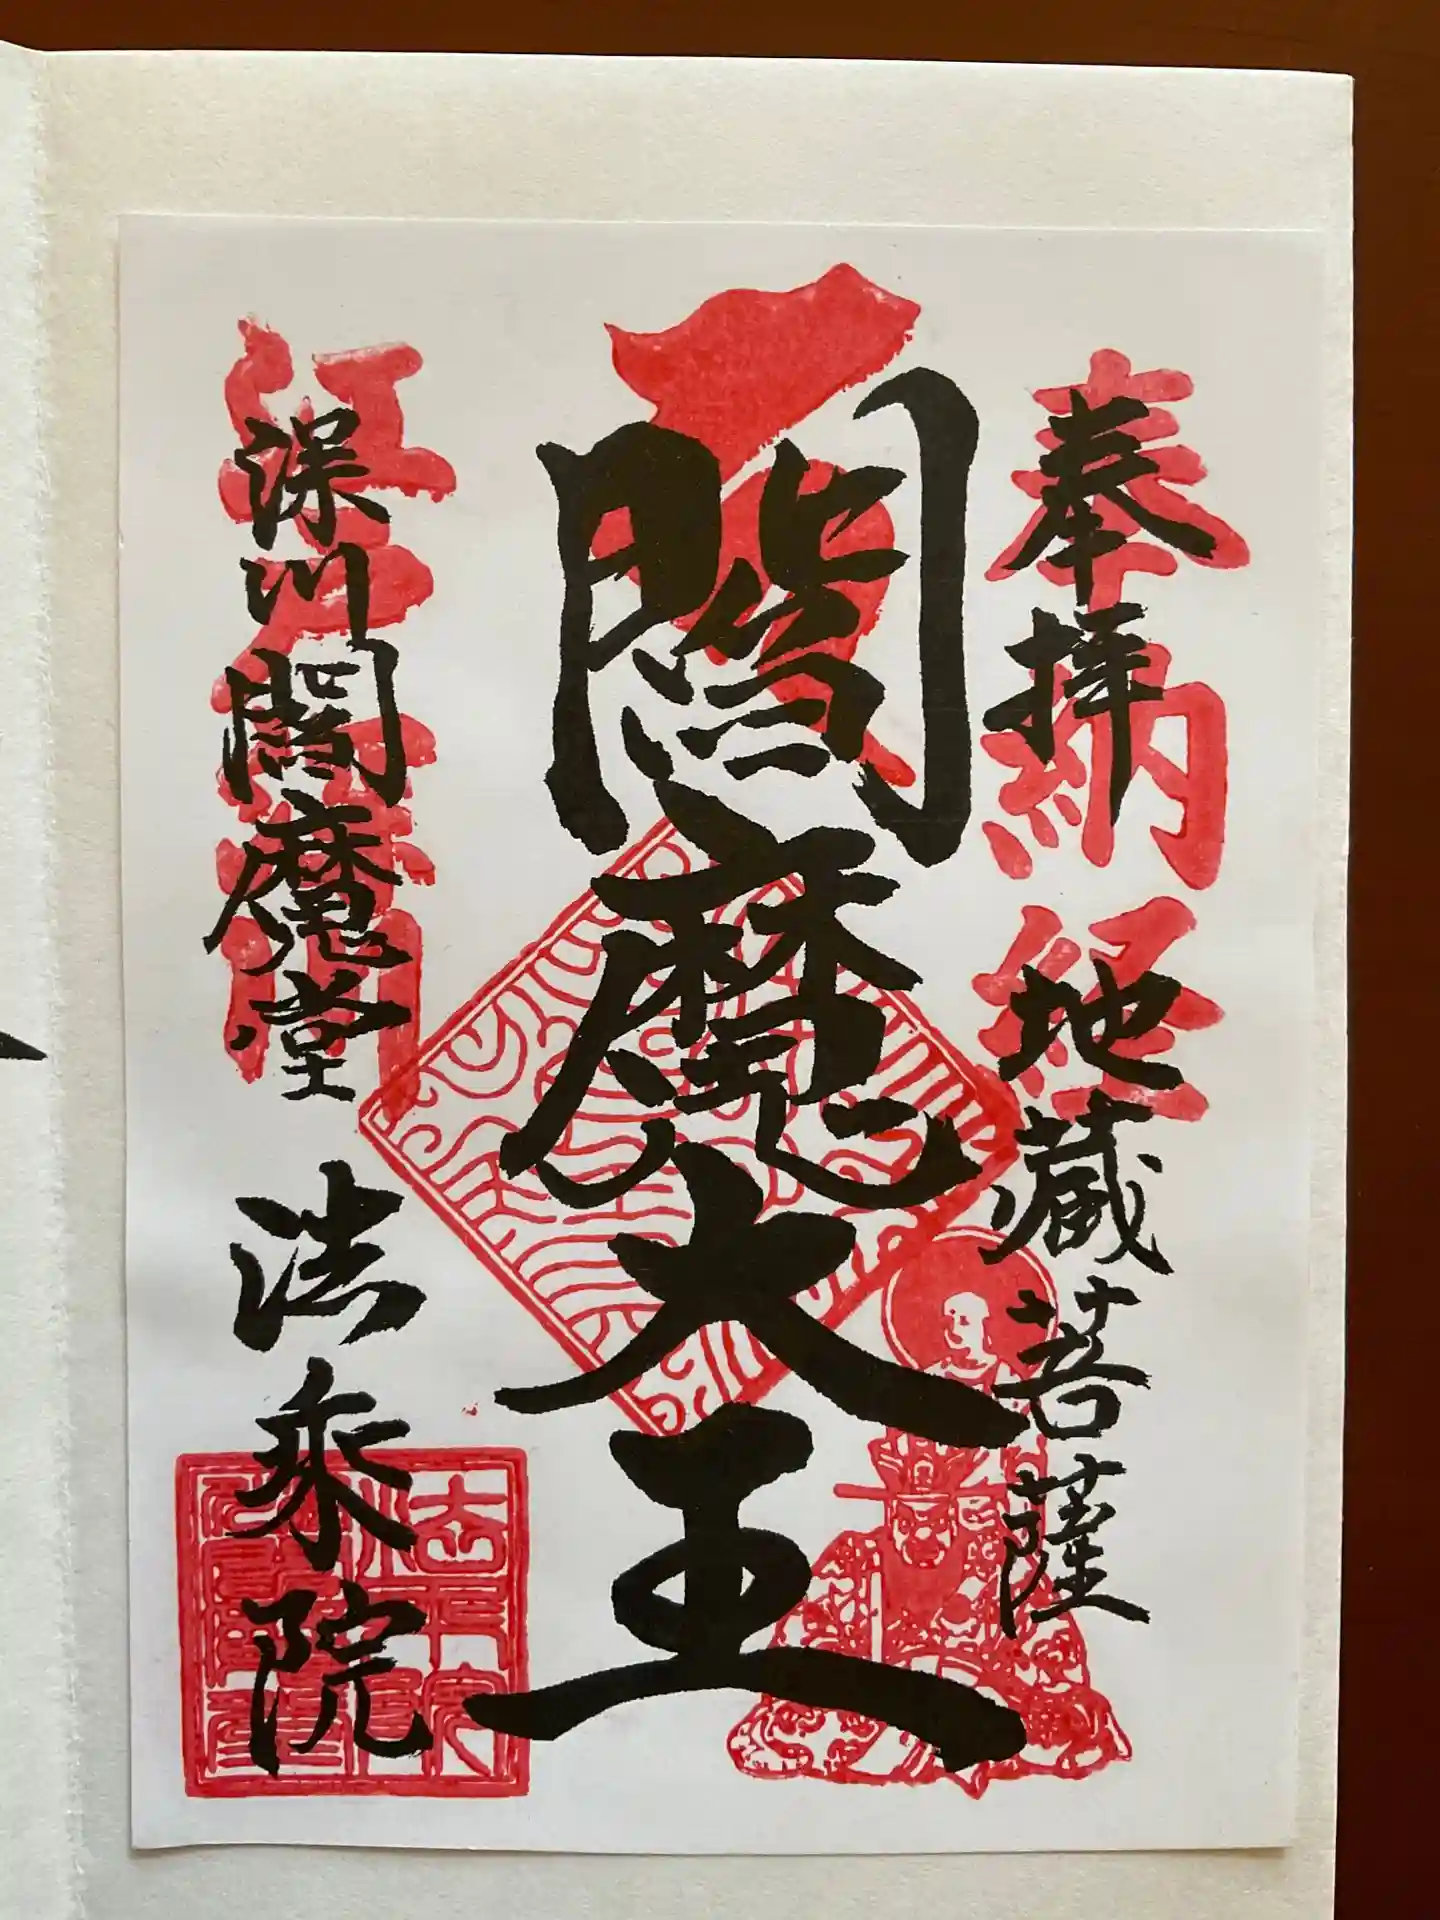 奉拝
地蔵菩薩
奉納経
閻魔大王
深川閻魔堂
法乗院
江戸三閻魔